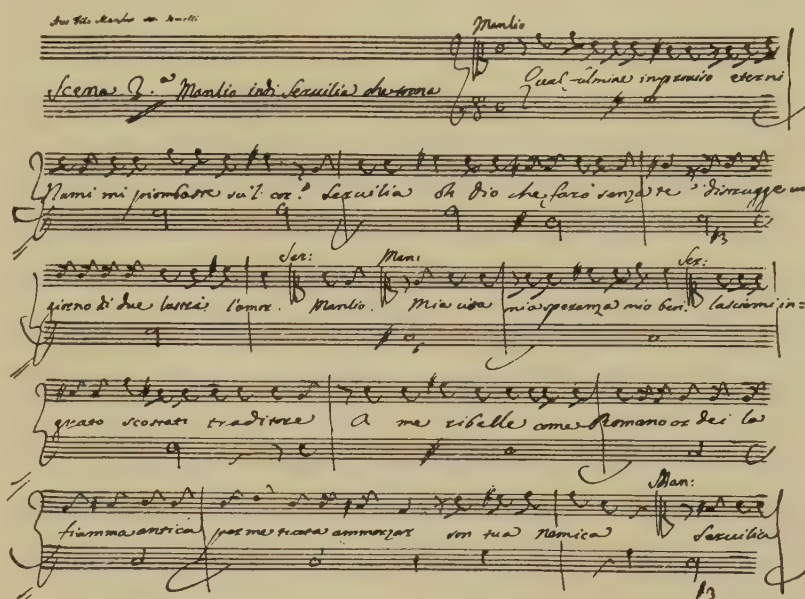 Aus Tito Manlio von Jomelli
Manlio
Scena 3.a Manlio indi Servilia che torna
Qual fulmine improviso eterni
Numi mi piombaste su'l cor? Servilia oh dio che farò senza te? distrugge un
Ser: Man: Ser:
giorno di due lustri l'amor. Manlio. Mia vita mia speranza mio ben. lasciami in=
grato scostati traditore A me ribelle come Romano or dei la
Man:
fiamma antica per me tutta ammorzar son tua Nemica Servilia